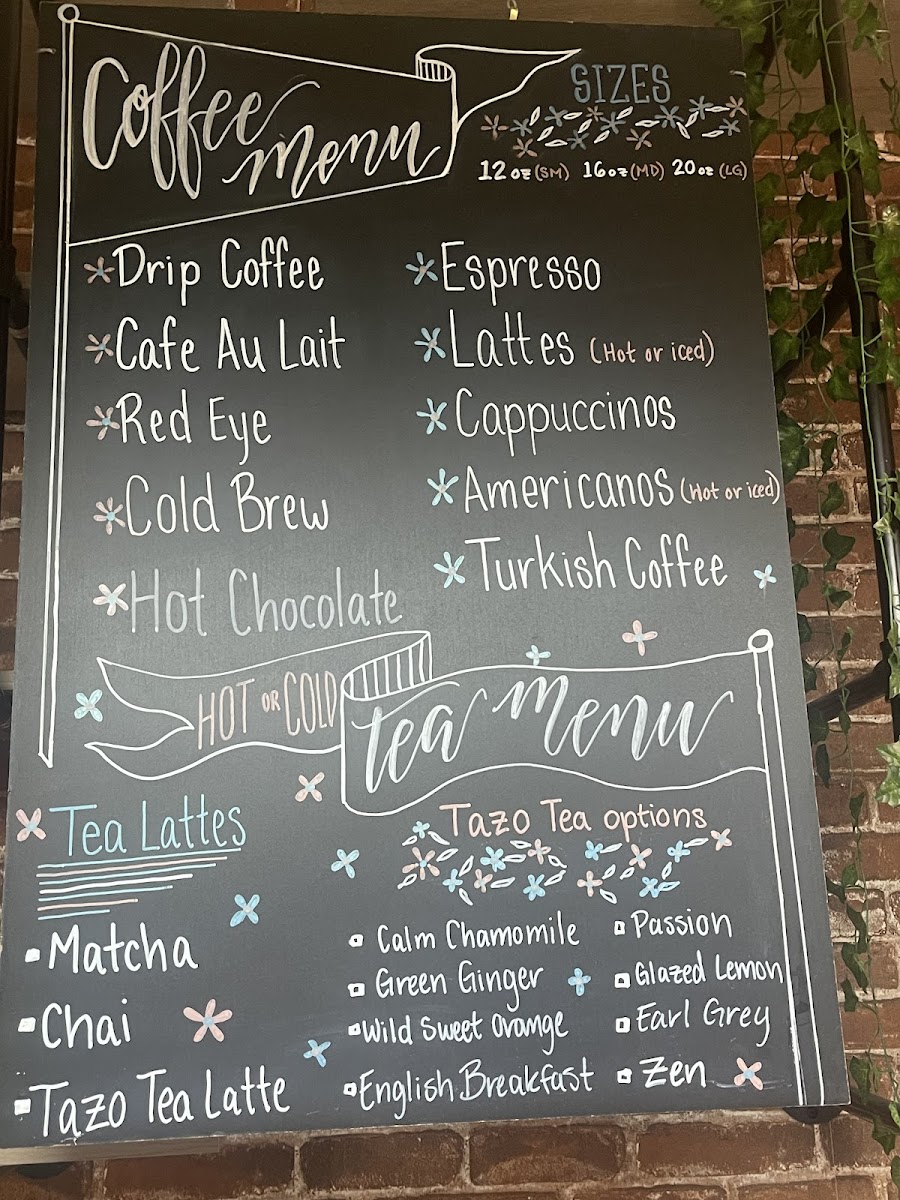 Coffee menu
SIZES
12 oz (SM) 16 oz (MD) 20 oz (LG)
Drip Coffee
Cafe Au Lait
Red Eye
Cold Brew
Hot Chocolate
Espresso
Lattes (Hot or iced)
Cappuccinos
Americanos (Hot or iced)
Turkish Coffee
HOT OR COLD
tea menu
Tea Lattes
Matcha
Chai
Tazo Tea Latte
Tazo Tea options
Calm Chamomile
Green Ginger
Wild Sweet Orange
English Breakfast
Passion
Glazed Lemon
Earl Grey
Zen